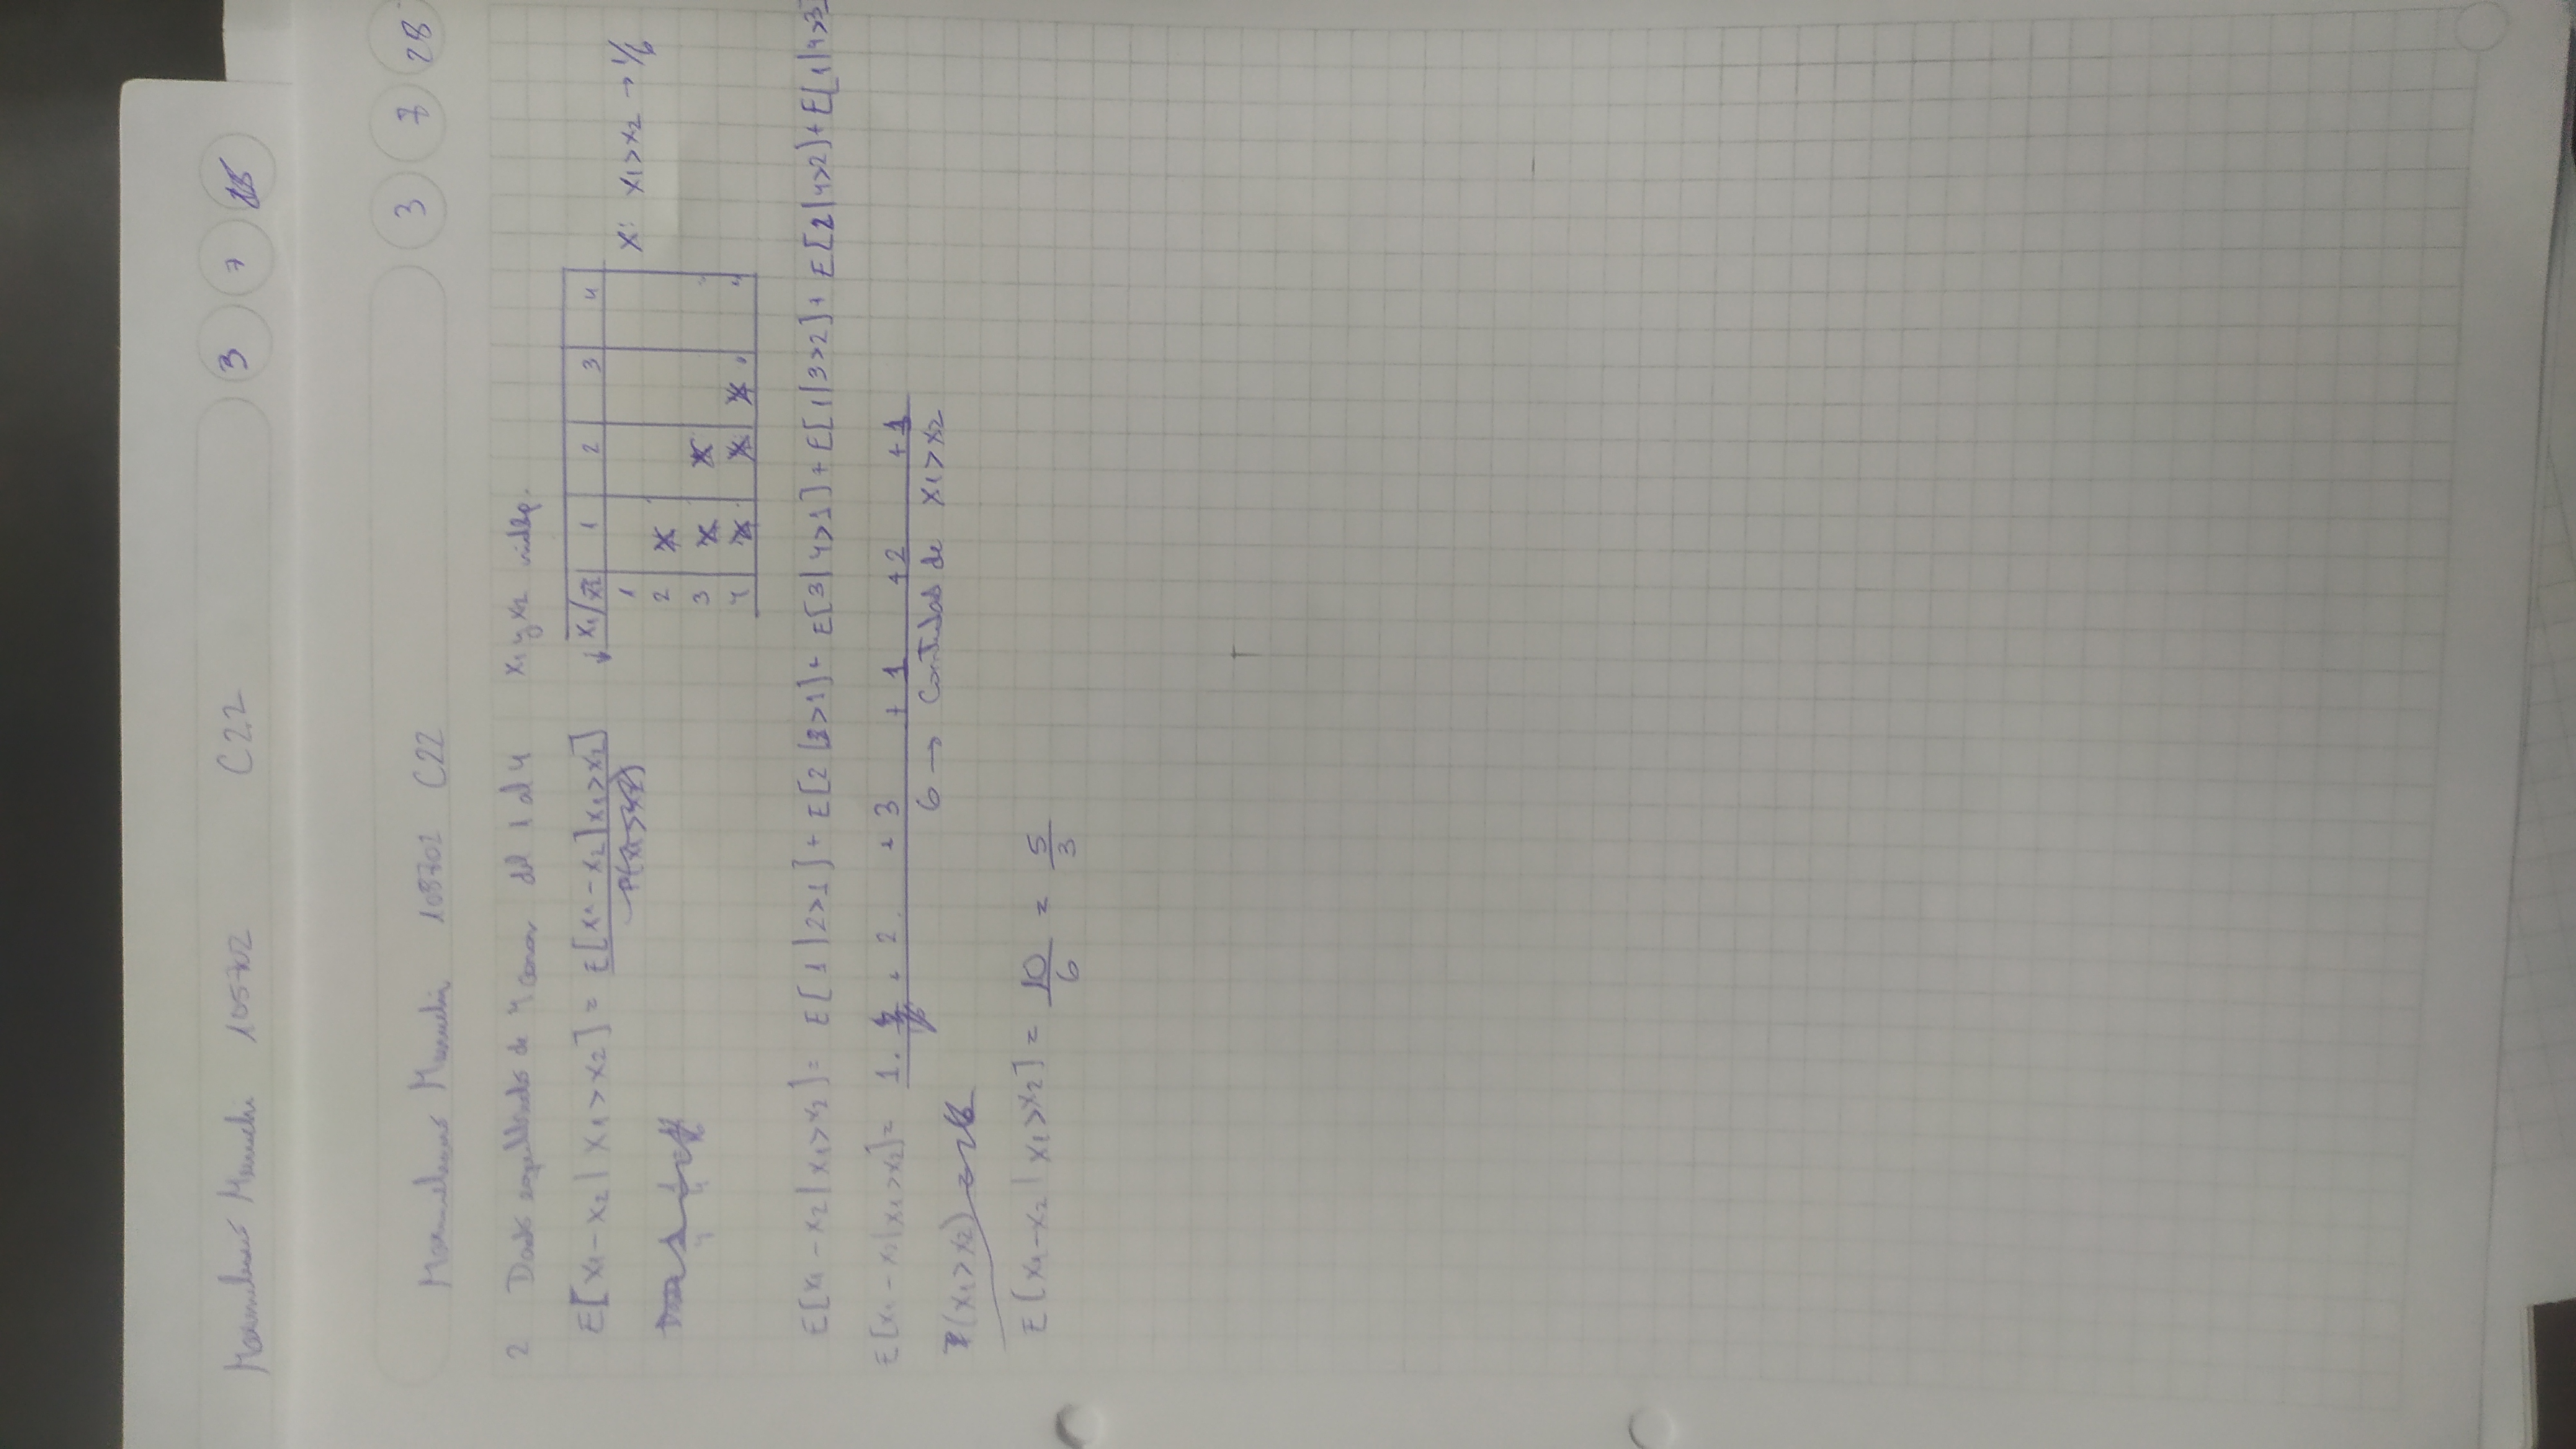 105702 C22 3 7 28
108702 C22 3 7 28
2 Dado equilibrado de 4 caras del 1 al 4 X1 y X2 indep.
E[X1-X2 | X1>X2] = E[X1-X2 | X1>X2]
P(X1>X2)
X1/X2 1 2 3 4
1
2 X
3 X X
4 X X X
X: X1>X2 → 1/6
E[X1-X2 | X1>X2] = E[1|2>1] + E[2|3>1] + E[3|4>1] + E[1|3>2] + E[2|4>2] + E[1|4>3]
E[X1-X2 | X1>X2] = 1. + 2 + 3 + 1 + 2 + 1
6 → Cantidad de X1>X2
P(X1>X2)
E[X1-X2 | X1>X2] = 10/6 = 5/3